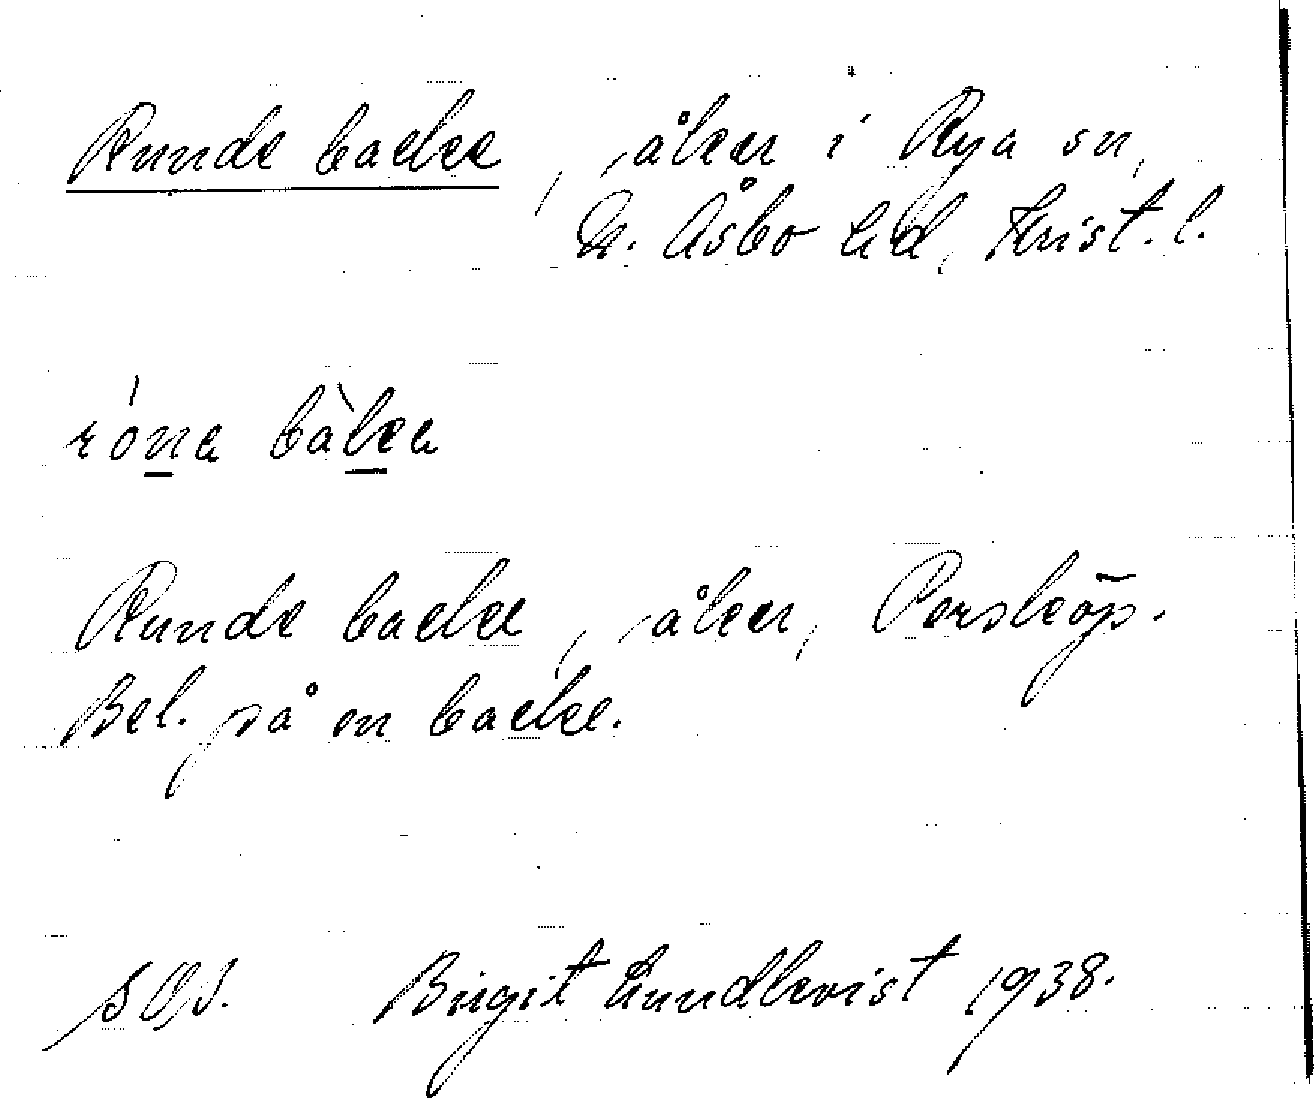 Runde backe, åker i Rya sn,
N. Åsbo hd, Krist. l.
róna bàka
Runde backe, åker, Porsköp.
Bel. på en backe.
Birgit Lundkvist 1938.